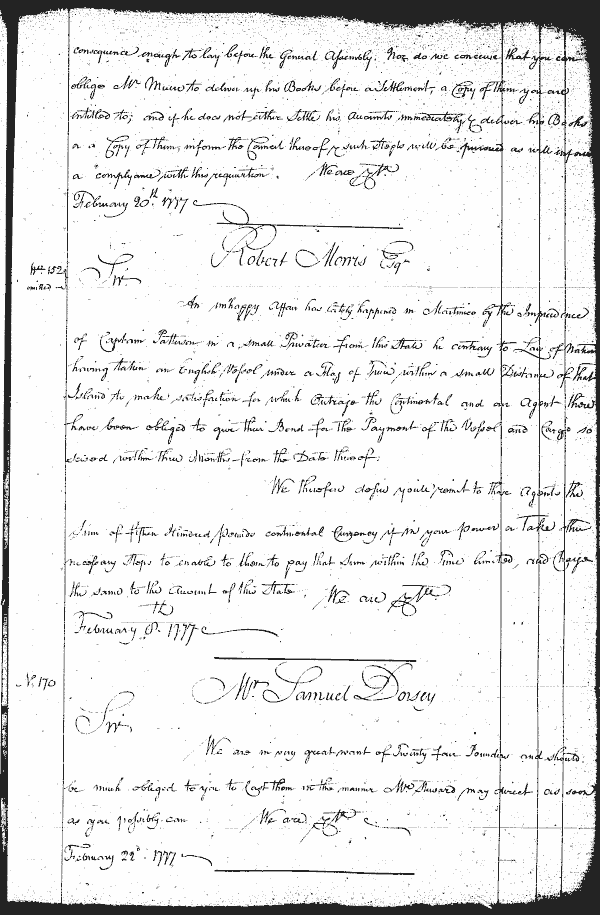 consequence enough to lay before the General Assembly. Nor do we conceive that you can
oblige Mr Muir to deliver up his Books before a Settlement, a Copy of them you are
entitled to; and if he does not either Settle his Accounts immediately & deliver his Books
or a Copy of them, inform the Council thereof & such Steps will be pursued as will inforce
a compliance with this requisition. We are &ca
February 20th 1777
Robert Morris Esqr
No 152
omitted
Sir
An unhappy Affair has lately happened in Martinico by the Imprudence
of Captain Patterson in a small Privateer from this State he contrary to Law of Nations
having taken an English Vessel under a Flag of Truce within a small Distance of that
Island to make satisfaction for which Outrage the Continental and our Agent there
have been obliged to give their Bond for the Payment of the Vessel and Cargo so
seized within three Months from the Date thereof.
We therefore desire you'll remit to those Agents the
Sum of fifteen Hundred pounds continental Currency if in your power or Take the
necessary Steps to enable to them to pay that Sum within the Time limited, and Charge
the same to the Account of this State. We are &ca
February 8th 1777
No 170
Mr Samuel Dorsey
Sir,
We are in very great want of Twenty Four Pounders and should
be much obliged to you to Cast them in the manner Mr may direct, as soon
as you possibly can We are &ca
February 22d 1777